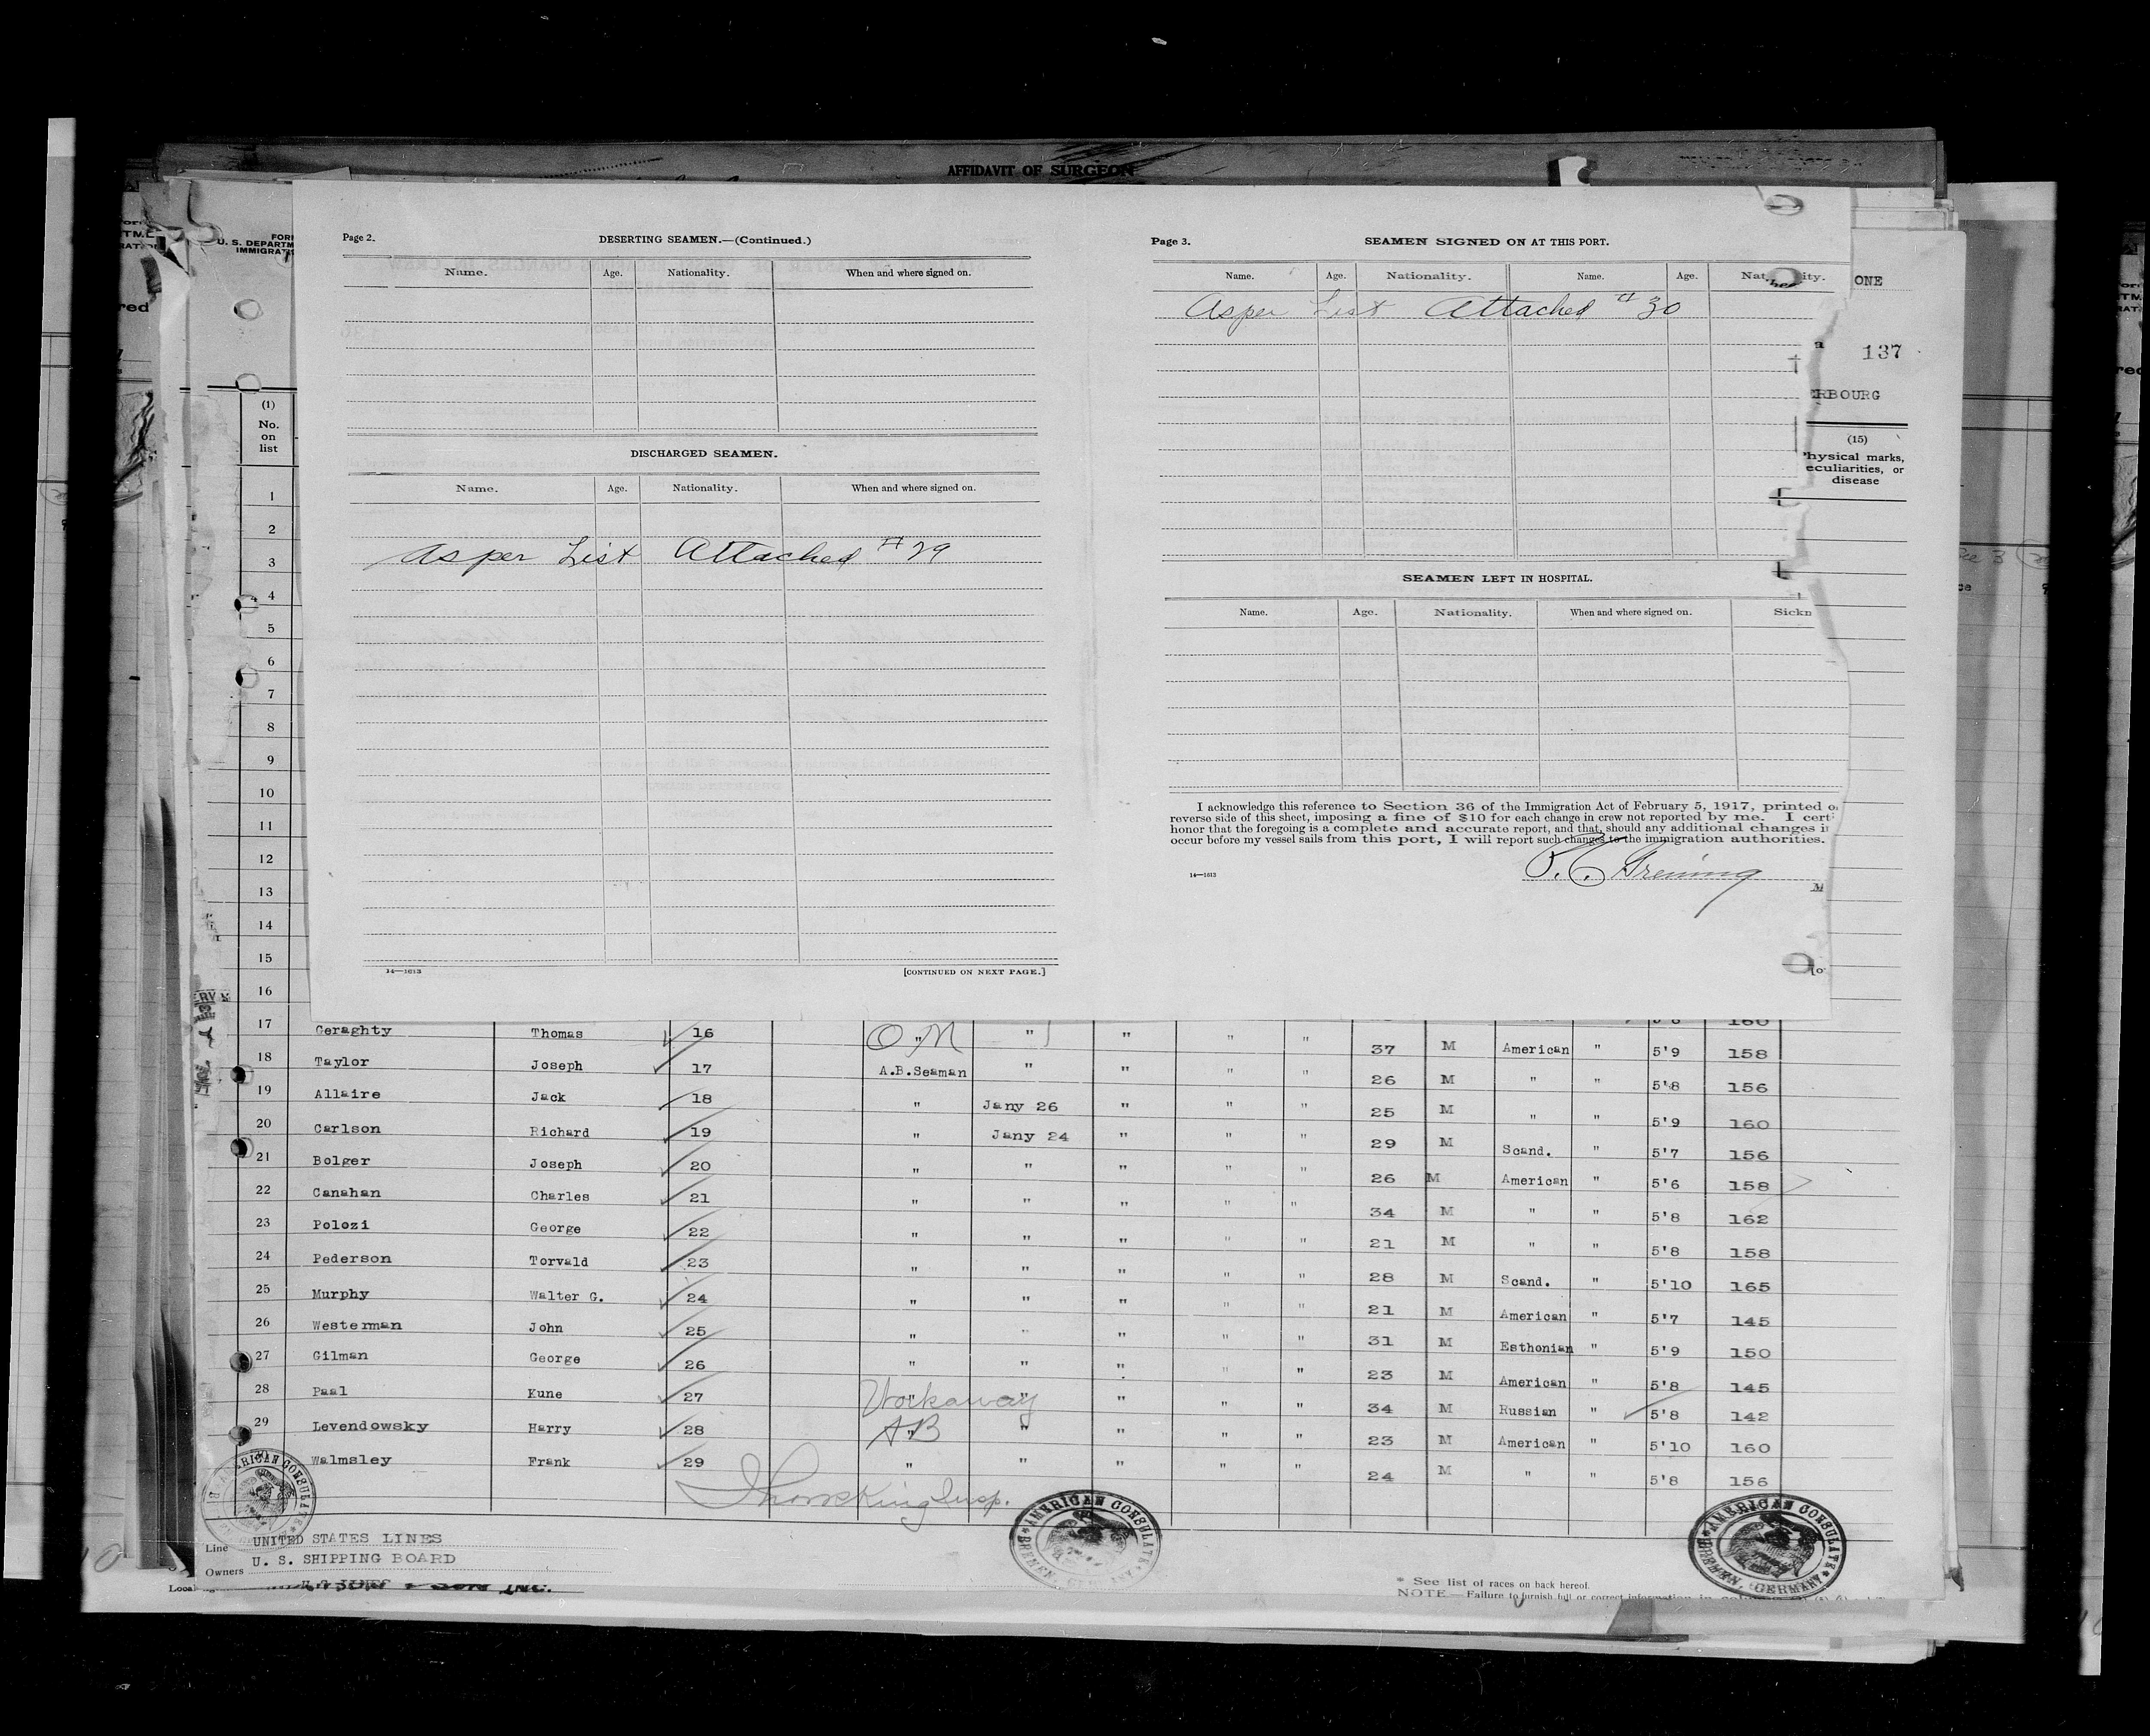 AFFIDAVIT OF SURGEON
Page 2.
DESERTING SEAMEN.—(Continued.)
Name. Age. Nationality. When and where signed on.
DISCHARGED SEAMEN.
Name. Age. Nationality. When and where signed on.
As per List Attached #29
14—1613 [CONTINUED ON NEXT PAGE.]
Page 3.
SEAMEN SIGNED ON AT THIS PORT.
Name. Age. Nationality. Name. Age.
As per List Attached # 30
SEAMEN LEFT IN HOSPITAL.
Name. Age. Nationality. When and where signed on. Sickn
I acknowledge this reference to Section 36 of the Immigration Act of February 5, 1917, printed o
reverse side of this sheet, imposing a fine of $10 for each change in crew not reported by me. I certi
honor that the foregoing is a complete and accurate report, and that, should any additional changes in
occur before my vessel sails from this port, I will report such changes to the immigration authorities.
14—1613
FORM
U. S. DEPARTM
IMMIGRATI
ONE
137
ERBOURG
(1)
No.
on
list
(15)
Physical marks,
peculiarities, or
disease
1
2
3
4
5
6
7
8
9
10
11
12
13
14
15
16
17 Geraghty Thomas 16 O M " " " " 37 M American " 5'9 158
18 Taylor Joseph 17 A.B.Seaman " " " " 26 M " " 5'8 156
19 Allaire Jack 18 " Jany 26 " " " 25 M " " 5'9 160
20 Carlson Richard 19 " Jany 24 " " " 29 M Scand. " 5'7 156
21 Bolger Joseph 20 " " " " " 26 M American " 5'6 158
22 Canahan Charles 21 " " " " " 34 M " " 5'8 162
23 Polozi George 22 " " " " " 21 M " " 5'8 158
24 Pederson Torvald 23 " " " " " 28 M Scand. " 5'10 165
25 Murphy Walter G. 24 " " " " " 21 M American " 5'7 145
26 Westerman John 25 " " " " " 31 M Esthonian " 5'9 150
27 Gilman George 26 " " " " " 23 M American " 5'8 145
28 Paal Kune 27 Workaway " " " " 34 M Russian " 5'8 142
29 Levendowsky Harry 28 AB " " " " 23 M American " 5'10 160
Walmsley Frank 29 " " " " " 24 M " " 5'8 156
Line UNITED STATES LINES
Owners U. S. SHIPPING BOARD
AMERICAN CONSULATE
AMERICAN CONSULATE BREMEN, GERMANY
AMERICAN CONSULATE BREMEN, GERMANY
* See list of races on back hereof.
NOTE.—Failure to furnish full or correct information in